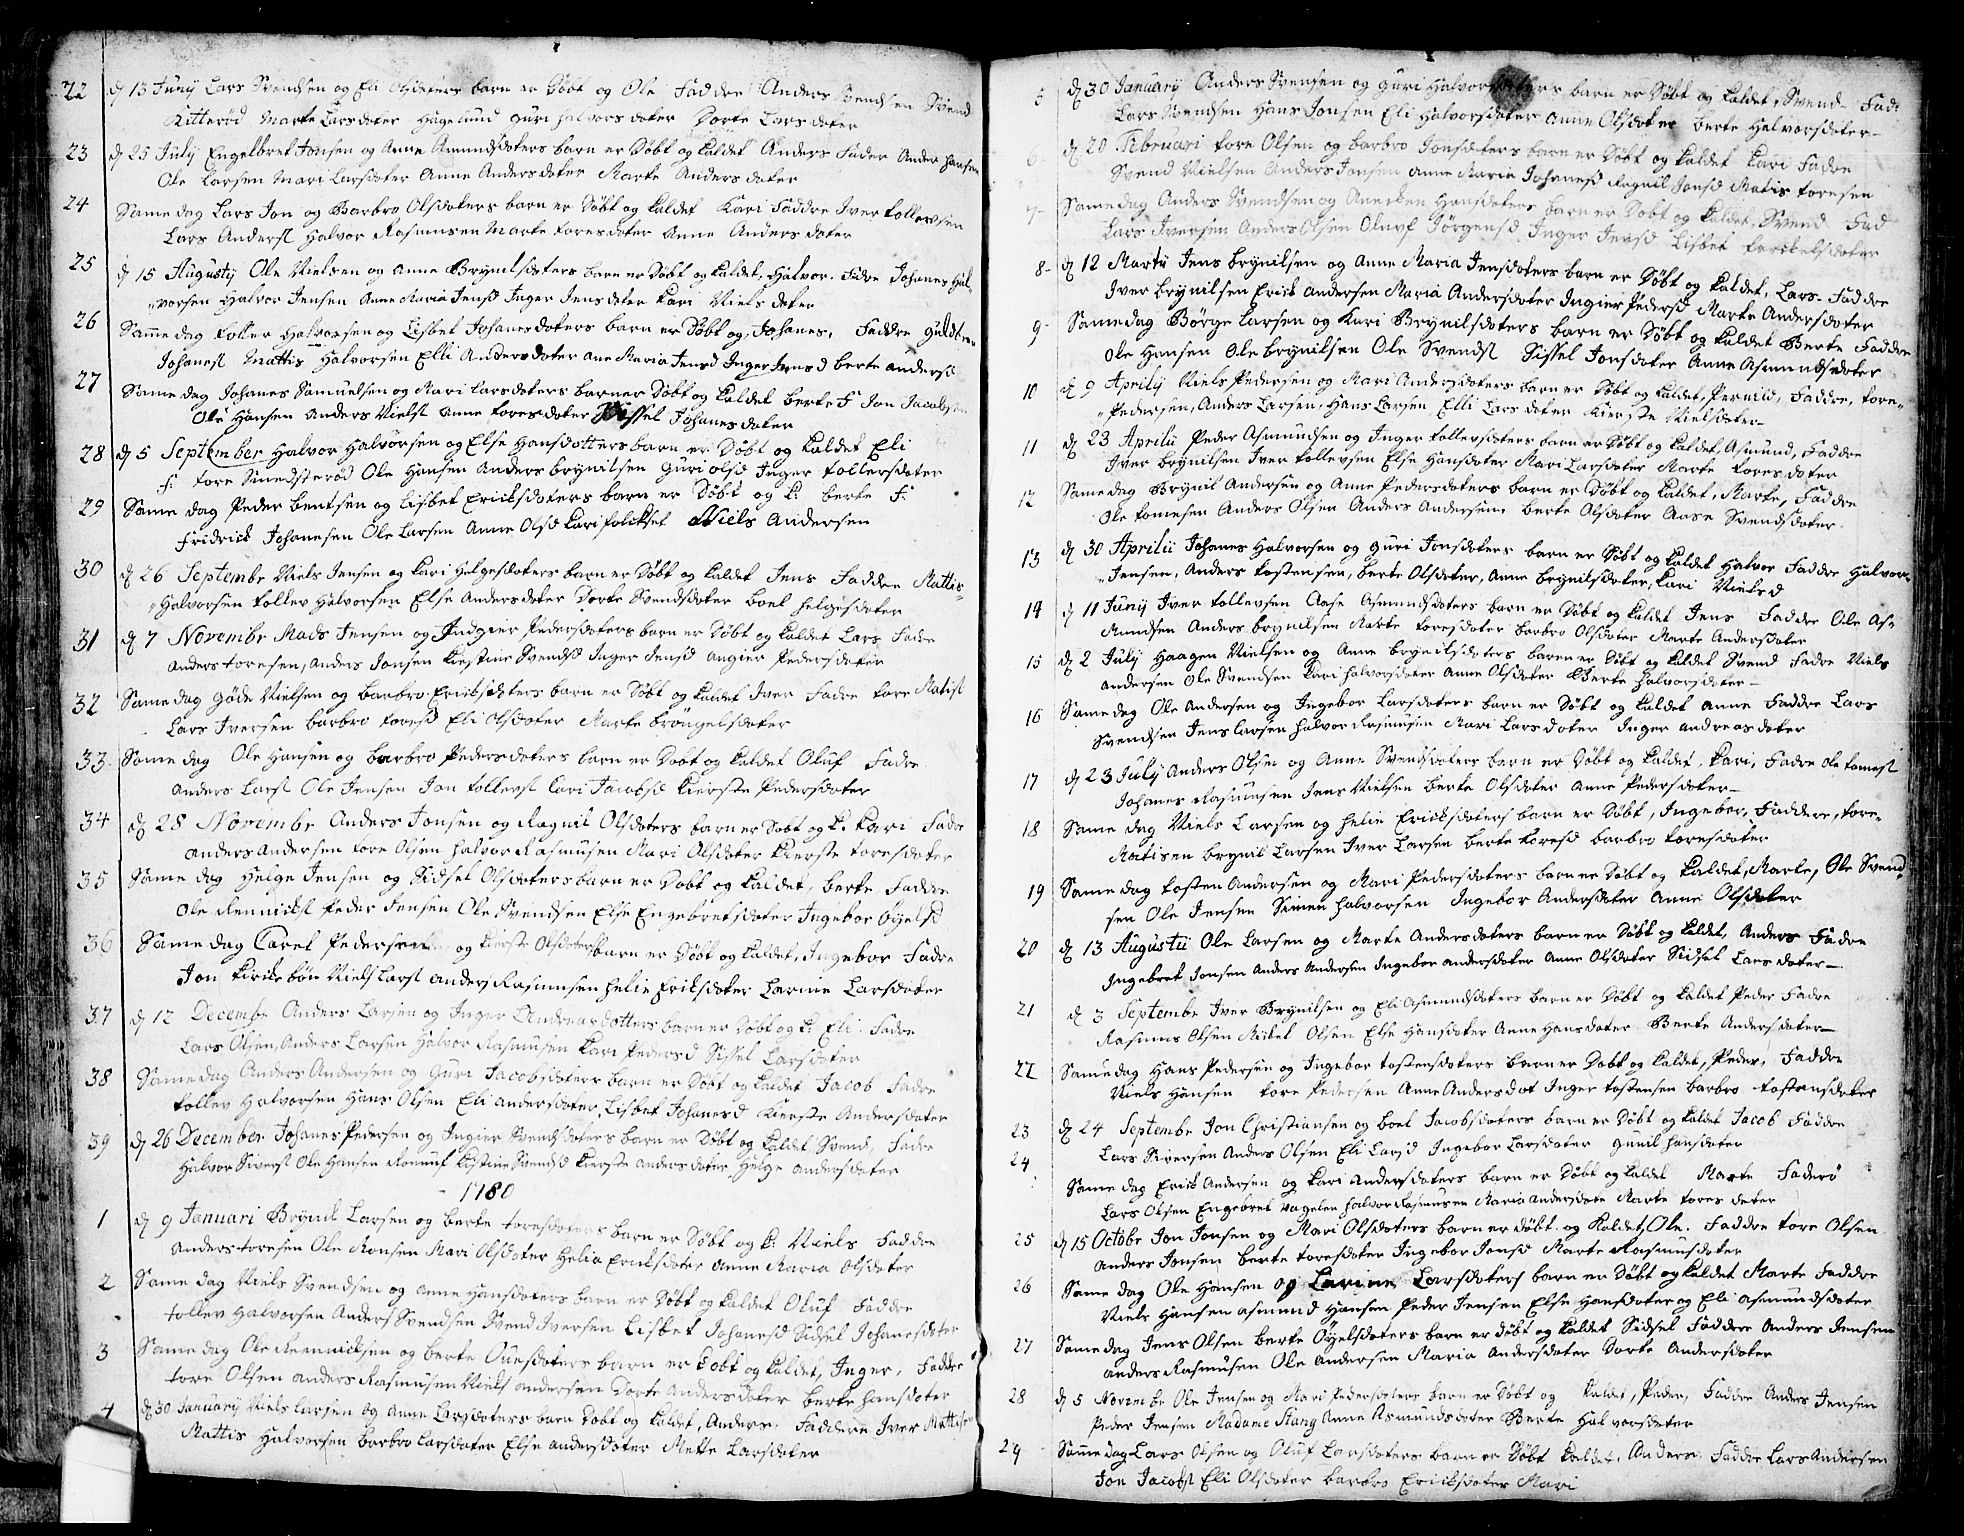 22 d 13 Junÿ Lars Svendsen og Eli Olsdaters barn er Døbt og Ole Faddre Anders Svendsen Svend
Kitterød Marte Larsdater Hagelund guri halvorsdater Dorte Larsdater
23 d 25 Julÿ Engelbret Jonsen og Anne Amundsdaters barn er Døbt og Kaldet Anders Fadre Ander hansen
Ole Larsen Mari Larsdater Anne Andersdater Marte Andersdater
24 Same dag Lars Jon og Barbro Olsdaters barn er Døbt og Kaldet Kari Faddre Iver tollevsen
Lars Andersl Halvor Rasmusen Marte toresdater Anne Andersdater
25 d 15 Augustÿ Ole Nielsen og Anne Brynilsdaters barn er Døbt og Kaldet, Halvor. Fadre Johanes Hal-
vorsen Halvor Jensen Anne Maria Jensd Inger Jensdater Kari Nielsdater
26 Same dag tollev Halvorsen og Lisbet Johanesdaters barn er Døbt og, Johanes, Faddre
Johanesl Mattis Halvorsen Elli Andersdater ane Maria Jensd Inger Jensd berte andersd
27 Same dag Johanes Samuelsen og Mari Larsdaters barn er Døbt og Kaldet berte F Jon Jacobsen
Ole Hansen Anders Nielsl Anne toresdater Sissel Johanesdater
28 d 5 September Halvor Halvorsen og Else Hansdotters barn er Døbt og Kaldet Eli
f: tore Smedsterød Ole Hansen Anders brynilsen Guri olsd Inger tollevsdater
29 Same dag Peder bentsen og Lisbet Ericksdaters barn er Døbt og K: berte F:
Fridrick Johanesen Ole Larsen Anne Olsd Kari Niels Andersen
30 d 26 Septembe Niels Jensen og Kari Helgesdaters barn er Døbt og Kaldet Jens Faddre Mattis-
Halvorsen tollev Halvorsen Else Andersdater Dorte Svendsdater boel helgesdater
31 d 7 Novembe Mads Jensen og Indgier Pedersdaters barn er Døbt og Kaldet Lars Fadre
Anders toresen, Anders Jonsen Kiestine Svendsd Inger Jensd Angier Pedersdater
32 Same dag gøde Nielsen og barbro Ericksdaters barn er Døbt og Kaldet Iver Fadre tore Matisl
Lars Iversen barbro toresd Eli Olsdater Marte brøngelsdater
33 Same dag Ole Hansen og barbro Pedersdaters barn er Døbt og Kaldet Oluf Fadre
Anders Larsl Ole Jensen Jon tollevsl Kari Jacobsd Kierste Pedersdater
34 d 28 Novembe Anders Jonsen og Ragnil Olsdaters barn er Døbt og K. Kari Fadre
Anders Andersen tore Olsen Halvor Rasmusen Mari Olsdater Kierste toresdater
35 Same dag Helge Jensen og Sidsel Olsdaters barn er Døbt og Kaldet, berte Faddre
Ole Rennicksl Peder Jensen Ole Svendsen Else Engebretsdater Ingebor Øyelsd
36 Same dag Carel Pedersen og Kierste Olsdaters barn er Døbt og Kaldet, Ingebor Fadre
Jon Kirckebøn Niels Larsl Anders Rasmusen helie Eriksdater Larine Larsdater
37 d 12 Decembe Anders Larsen og Inger Andreasdotters barn er Døbt og K: Eli. Fadre
Lars Olsen, Anders Larsen Halvor Rasmusen Kari Pedersd Sissel Larsdater
38 Same dag Anders Andersen og Guri Jacobsdaters barn er Døbt og Kaldet Jacob Fadre
tollev Halvorsen Hans Olsen Eli andersdater, Lisbet Johanesd Kierste Andersdater
39 d 26 December Johanes Pedersen og Ingier Svendsdaters barn er Døbt og Kaldet Svend, Fadre
Halvor Siversl Ole Hansen Kistine Svendsd Kierste andersdater Helge Andersdater
1780
1 d 9 Januari Brynil Larsen og berte toresdaters barn er Døbt og K: Niels Faddre
Anders toresen Ole Monsen Mari Olsdater Helia Ericksdater Anne Maria Olsdater
2 Same dag Niels Svendsen og Anne Hansdaters barn er Døbt og Kaldet Oluf Faddre
tollev Halvorsen Anders Svendsen Svend Iversen Lisbet Johanesd Sidsel Johanesdater
3 Same dag Ole Rennicksen og berte Ouesdaters barn er Døbt og Kaldet, Inger, Faddre
tore Olsen Anders Rasmusen Niels Andersen Dorte Andersdater berte hansdater
4 d 30 Januarÿ Niels Larsen og Anne Larsdaters barn Døbt og Kaldet, Anders. Faddere Iver Mattisen
Mattis Halvorsen Barbro Larsdater Else andersdater Mette Larsdater
5 d 30 Januarÿ Anders Svensen og guri Halvorsdaters barn er Døbt og Kaldet, Svend. Fad:
Lars Svendsen Hans Jonsen Eli Halvorsdater Anne Olsdater berte Halvorsdater
6 d 20 Februari tore Olsen og barbro Jonsdaters barn er Døbt og Kaldet Kari Fadre
Svend Nielsen Anders Jonsen Anne Maria Johanesd Ragnil Jonsd Matis toresen
7 Same dag Anders Svendsen og Anecken Hansdaters barn er Døbt og Kaldet, Svend Fad
Lars Iversen Anders Olsen Oluf Jørgensd Inger Jensd Lisbet torckelsdater
8 d 12 Martÿ Jens brynilsen og Anne Maria Jensdaters barn er Døbt og Kaldet, Lars. Faddre
Iver brynilsen Erick Andersen Maria Andersdater Ingier Pedersd Marte Andersdater
9 Same dag Børge Larsen og Kari Brynilsdaters barn er Døbt og Kaldet Berte Faddre
Ole Hansen Ole brynilsen Ole Svendsl Sissel Jonsdater Anne Asmundsdater
10 d 9 Aprilÿ Niels Pedersen og Mari Andersdaters barn er Døbt og Kaldet, Pernild, Faddre, tore-
Pedersen, Anders Larsen, Hans Larsen Elli Larsdater Kierste Nielsdater
11 d 23 Aprilii Peder Asmundsen og Inger tollevsdaters barn er Døbt og Kaldet, Asmund, Faddre
Iver brynilsen Iver tollevsen Else Hansdater Mari Larsdater Marte toresdater
12 Same dag Brynil Andersen og Anne Pedersdaters barn er Døbt og Kaldet, Marte, Faddre
Ole tomesen Anders Olsen Anders Andersen, berte Olsdater Aase Svendsdater
13 d 30 Aprilii Johanes Halvorsen og guri Jonsdaters barn er Døbt og Kaldet Halvor Faddre Halvor-
Jensen, Anders tostensen, berte Olsdater, Anne brynilsdater, Kari Nielsd
14 d 11 Junÿ Iver tollevsen Aase Asmundsdaters barn er Døbt og Kaldet Jens Faddre Ole As-
mundsen Anders brynilsen Marte toresdater barbro Olsdater Marte Andersdater
15 d 2 Julÿ Haagen Nielsen og Anne brynilsdaters barn er Døbt og Kaldet Svend Fadre Niels
Andersen Ole Svendsen Kari halvorsdater Anne Olsdater Berte halvorsdater
16 Same dag Ole Andersen og Ingebor Larsdaters barn er Døbt og Kaldet Anne Faddre Lars
Svendsen Jens Larsen halvor Rasmusen Mari Larsdater Inger andreasdater
17 d 23 Julÿ Anders Olsen og Anne Svendsdaters barn er Døbt og Kaldet, Kari, Fadre Ole tomesl
Johanes Rasmusen Jens Nielsen berte Olsdater Anne Pedersdater
18 Same dag Niels Larsen og Helie Ericksdaters barn er Døbt, Ingebor, Faddere, tore-
Matisen brynil Larsen Iver Larsen berte toresd barbro toresdater
19 Same dag tosten Andersen og Mari Pedersdaters barn er Døbt og Kaldet, Marte, Ole Svend-
sen Ole Jensen Simen halvorsen Ingebor Andersdater Anne Olsdater
20 d 13 Augustii Ole Larsen og Marte Andersdaters barn er Døbt og Kaldet, Anders Fadre
Ingebret Jonsen Anders Andersen Ingebor andersdater Anne Olsdater Sidsel Larsdater
21 d 3 Septembe Iver Brynilsen og Eli Asmundsdaters barn er Døbt og Kaldet Peder Fadre
Rasmus Olsen Olsen Else Hansdater Anne Hansdater Berte Andersdater
22 Same dag Hans Pedersen og Ingebor tostensdaters barn er Døbt og Kaldet, Peder, Faddre
Niels Hansen tore Pedersen Anne Andersdot Inger tostensen barbro tostensdater
23 d 24 Septembe Jon Christiansen og boel Jacobsdaters barn er Døbt og Kaldet Jacob Faddre
Lars Siversen Anders Olsen Eli Larsd Ingebor Larsdater gunil hansdater
24 Same dag Erick Andersen og Kari Andersdaters barn er Døbt og Kaldet Marte Fadere
Lars Olsen Engebret halvor Rasmusen Maria Andersdate Marte toresdater
25 d 15 Octobe Jon Jonsen og Mari Olsdaters barn er døbt og Kaldet, Ole. Faddre tore Olsen
Anders Jonsen berte toresdater Ingebor Jonsd Marte Rasmusdater
26 Same dag Ole Hansen og Larine Larsdaters barn er Døbt og Kaldet Marte Faddre
Niels Hansen asmund Hansen Peder Jensen Else Hansdater og Eli asmundsdater
27 Same dag Jens Olsen berte Øyelsdaters barn er døbt og Kaldet Sidsel Faddre Anders Jensen
Anders Rasmusen Ole Andersen Maria Andersdater Dorte Andersdater
28 d 5 Novembe Ole Jensen og Mari Pedersdaters barn er Døbt og Kaldet, Peder, Faddre Anders Jensen
Peder Jensen Madame Stang Anne Asmundsdater Berte Halvorsdater
29 Same dag Lars Olsen og Oluf Larsdaters barn er Døbt Kaldet, Anders. Faddre Lars Andersen
Jon Jacobsl Eli Olsdater barbro Ericksdater Mari